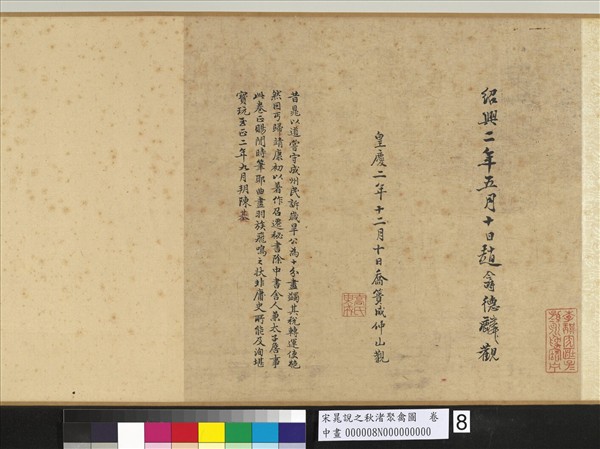 紹興二年五月十日趙令德麟觀
皇慶二年十二月十日喬簣成仲山觀
喬氏
昔晁以道嘗守成州民訴歲旱公為十分盡蠲其稅轉運使
然因丐歸靖康初以著作召遷秘書除中書舍人兼太子詹事
此卷正賜閒時筆耶曲盡羽族飛鳴之狀非庸史所能及洵堪
寶玩至正二年九月朔陳基
宋晁說之秋渚聚禽圖 卷
中畫 000008N000000000
8